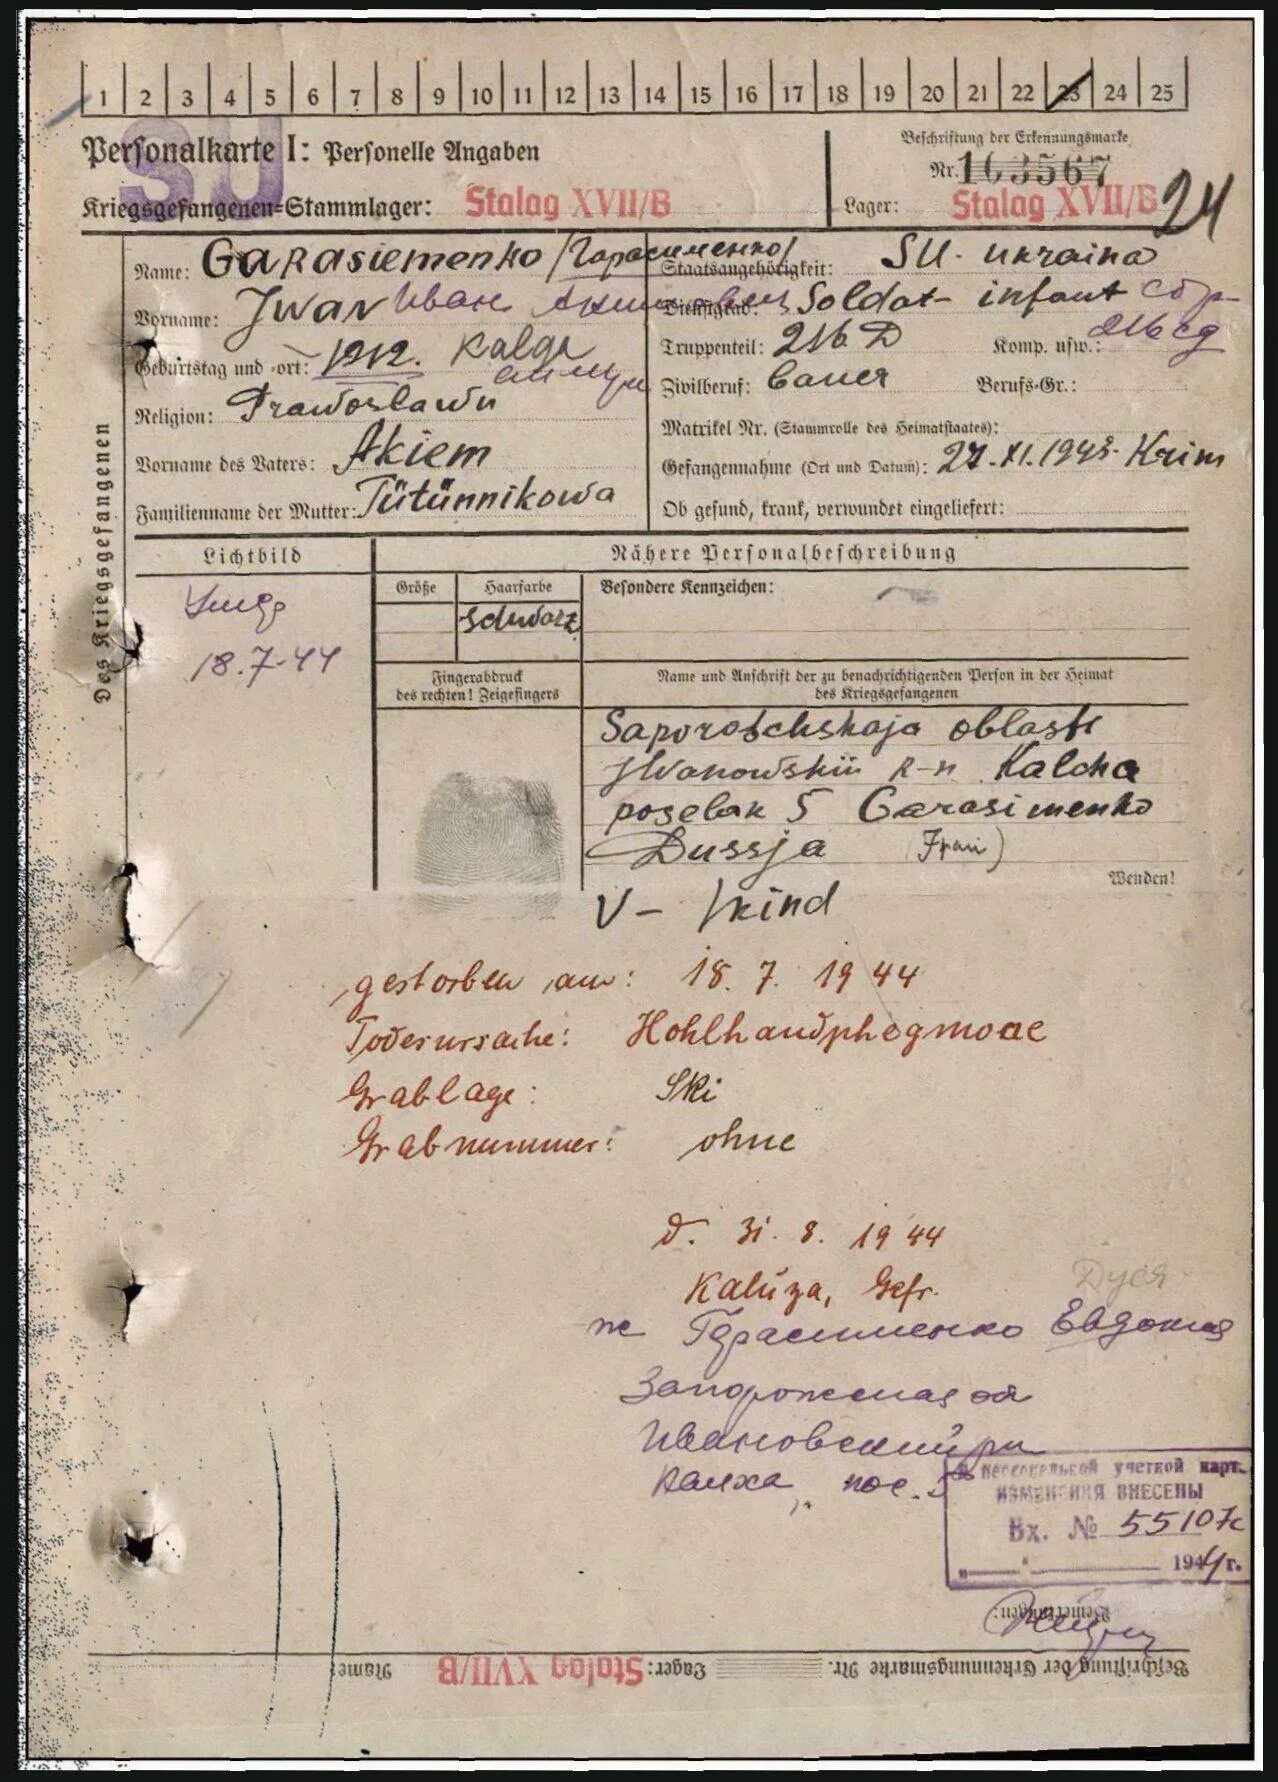 1 2 3 4 5 6 7 8 9 10 11 12 13 14 15 16 17 18 19 20 21 22 23 24 25
SU
Personalkarte I: Personelle Angaben
Kriegsgefangenen-Stammlager: Stalag XVII/B
Beschriftung der Erkennungsmarke
Nr. 103567
Lager: Stalag XVII/B
24
Des Kriegsgefangenen
Name: Garasiemenko /Герасименко/
Vorname: Jwan Иван Акимович
Geburtstag und -ort: 1912. Kalga
Religion: Prawoslawn
Vorname des Vaters: Akiem
Familienname der Mutter: Tütünnikowa
Staatsangehörigkeit: SU- ukraina
Dienstgrad: Soldat- infant
Truppenteil: 216 D Komp. usw.: 216 сд
Zivilberuf: Bauer Berufs-Gr.:
Matrikel Nr. (Stammrolle des Heimatstaates):
Gefangennahme (Ort und Datum): 27. XI. 1943. Krim
Ob gesund, krank, verwundet eingeliefert:
Lichtbild
18.7.44
Nähere Personalbeschreibung
Größe Haarfarbe Besondere Kennzeichen:
schwarz
Fingerabdruck
des rechten! Zeigefingers
Name und Anschrift der zu benachrichtigenden Person in der Heimat
des Kriegsgefangenen
Saporotschskaja oblastj
Jwanowskii R-n Kalcha
poselak 5 Garasimenko
Dussja (Frau)
Wenden!
V- 1 kind
gestorben am: 18. 7. 1944
Todesursache: Hohlhandphegmone
Grablage: Ski
Grabnummer: ohne
d. 31. 8. 1944
Kaluza, Gefr.
Дуся
ж Герасименко Евдокия
Запорожская об
Ивановский рн
Калха, пос. 5
В персональной учетной карт.
ИЗМЕНЕНИЯ ВНЕСЕНЫ
Вх. № 55107с
" " 1944 г.
Bemerkungen:
Beschriftung der Erkennungsmarke Nr. Lager: Stalag XVII/B Name: